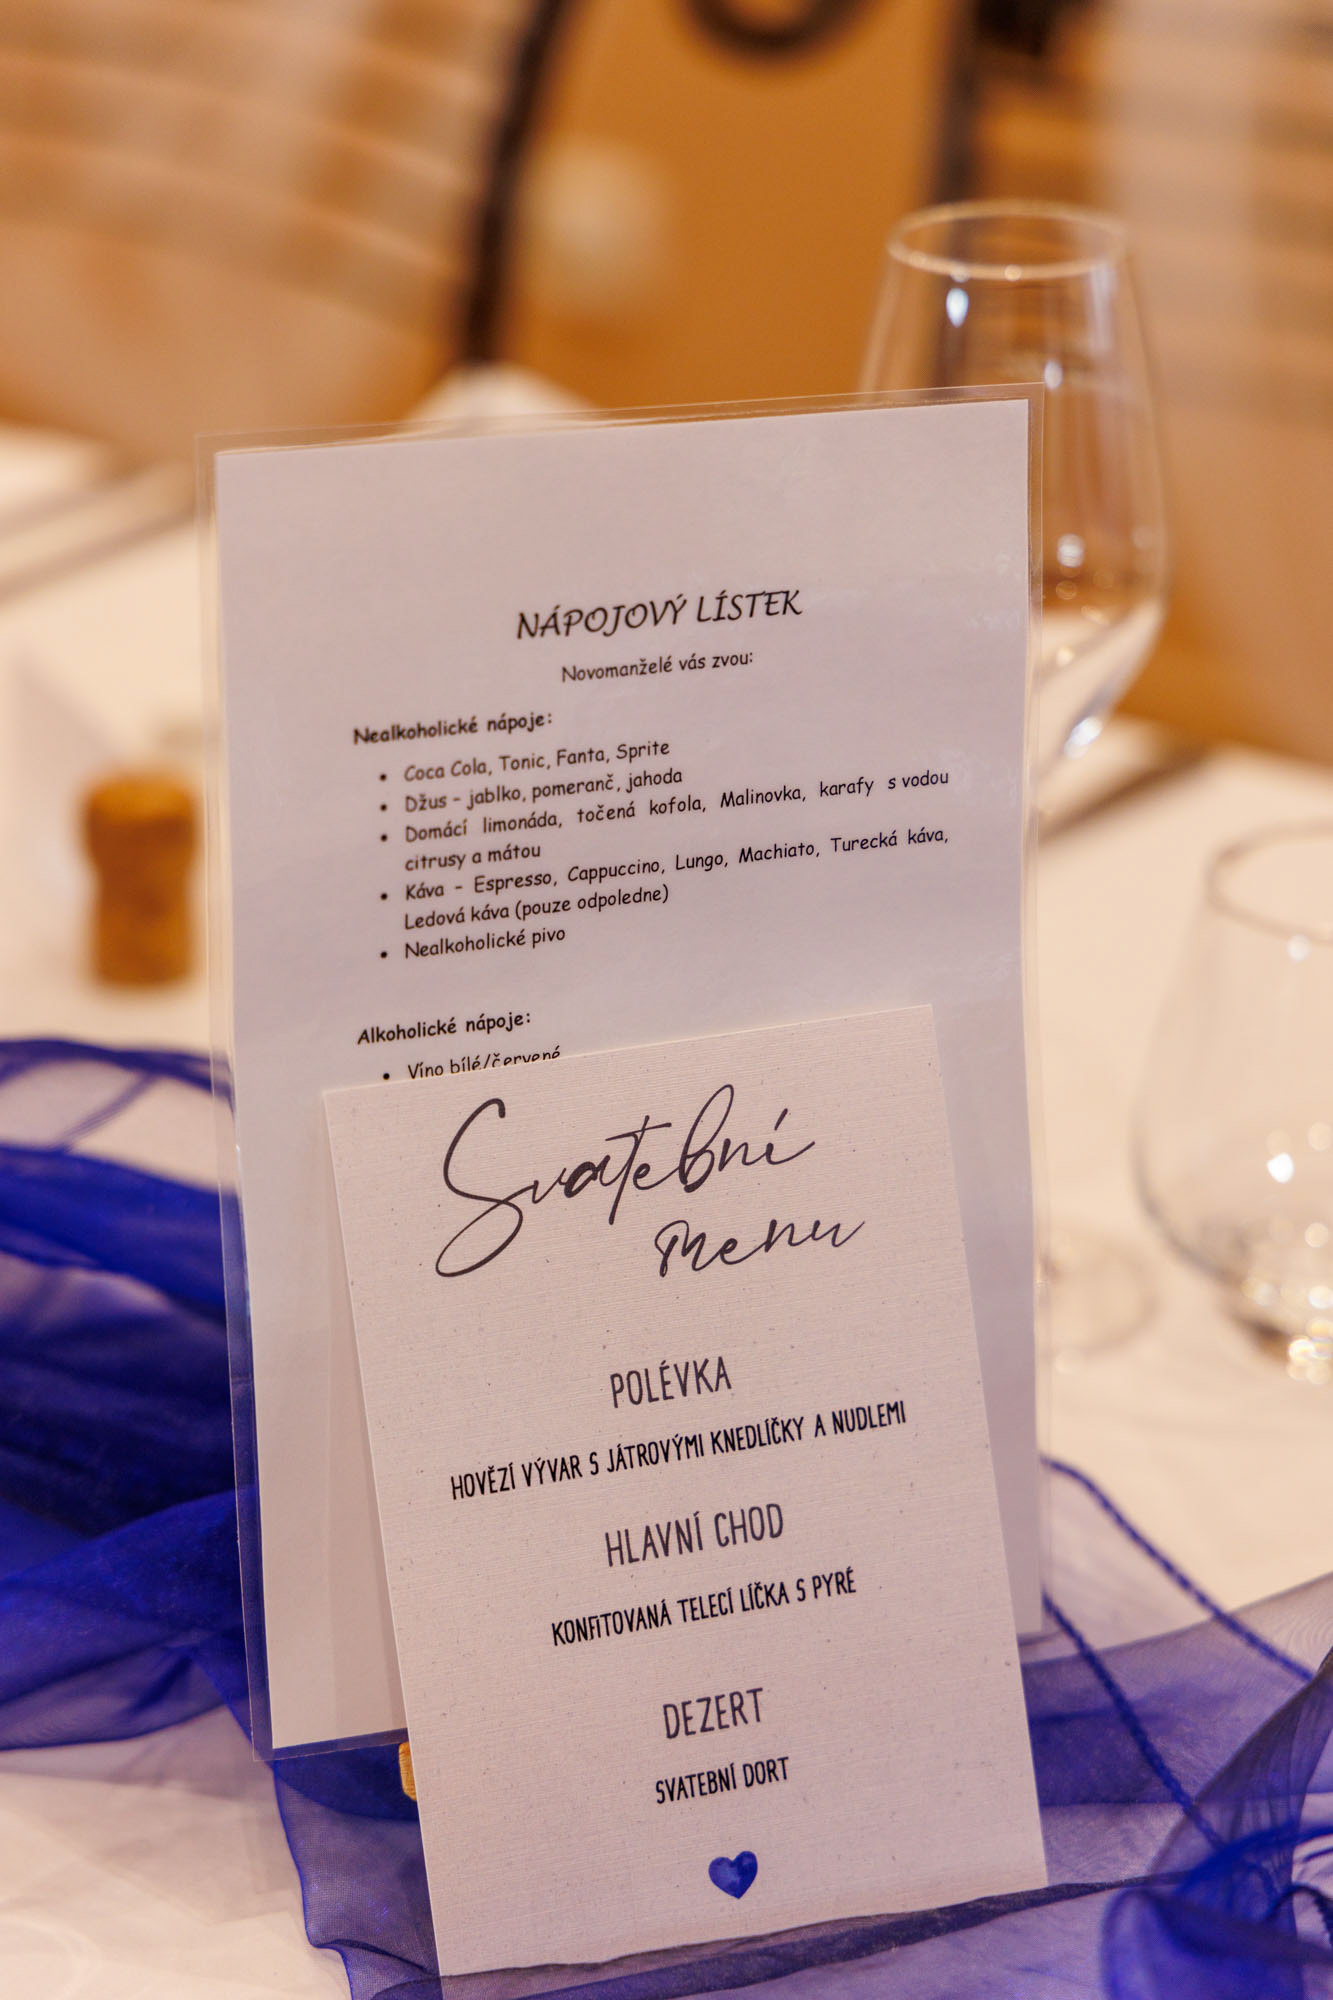 NÁPOJOVÝ LÍSTEK
Novomanželé vás zvou:
Nealkoholické nápoje:
• Coca Cola, Tonic, Fanta, Sprite
• Džus - jablko, pomeranč, jahoda
• Domácí limonáda, točená kofola, Malinovka, karafy s vodou
citrusy a mátou
• Káva - Espresso, Cappuccino, Lungo, Machiato, Turecká káva,
Ledová káva (pouze odpoledne)
• Nealkoholické pivo
Alkoholické nápoje:
• Víno bílé/červené
Svatební
menu
POLÉVKA
HOVĚZÍ VÝVAR S JÁTROVÝMI KNEDLÍČKY A NUDLEMI
HLAVNÍ CHOD
KONFITOVANÁ TELECÍ LÍČKA S PYRÉ
DEZERT
SVATEBNÍ DORT